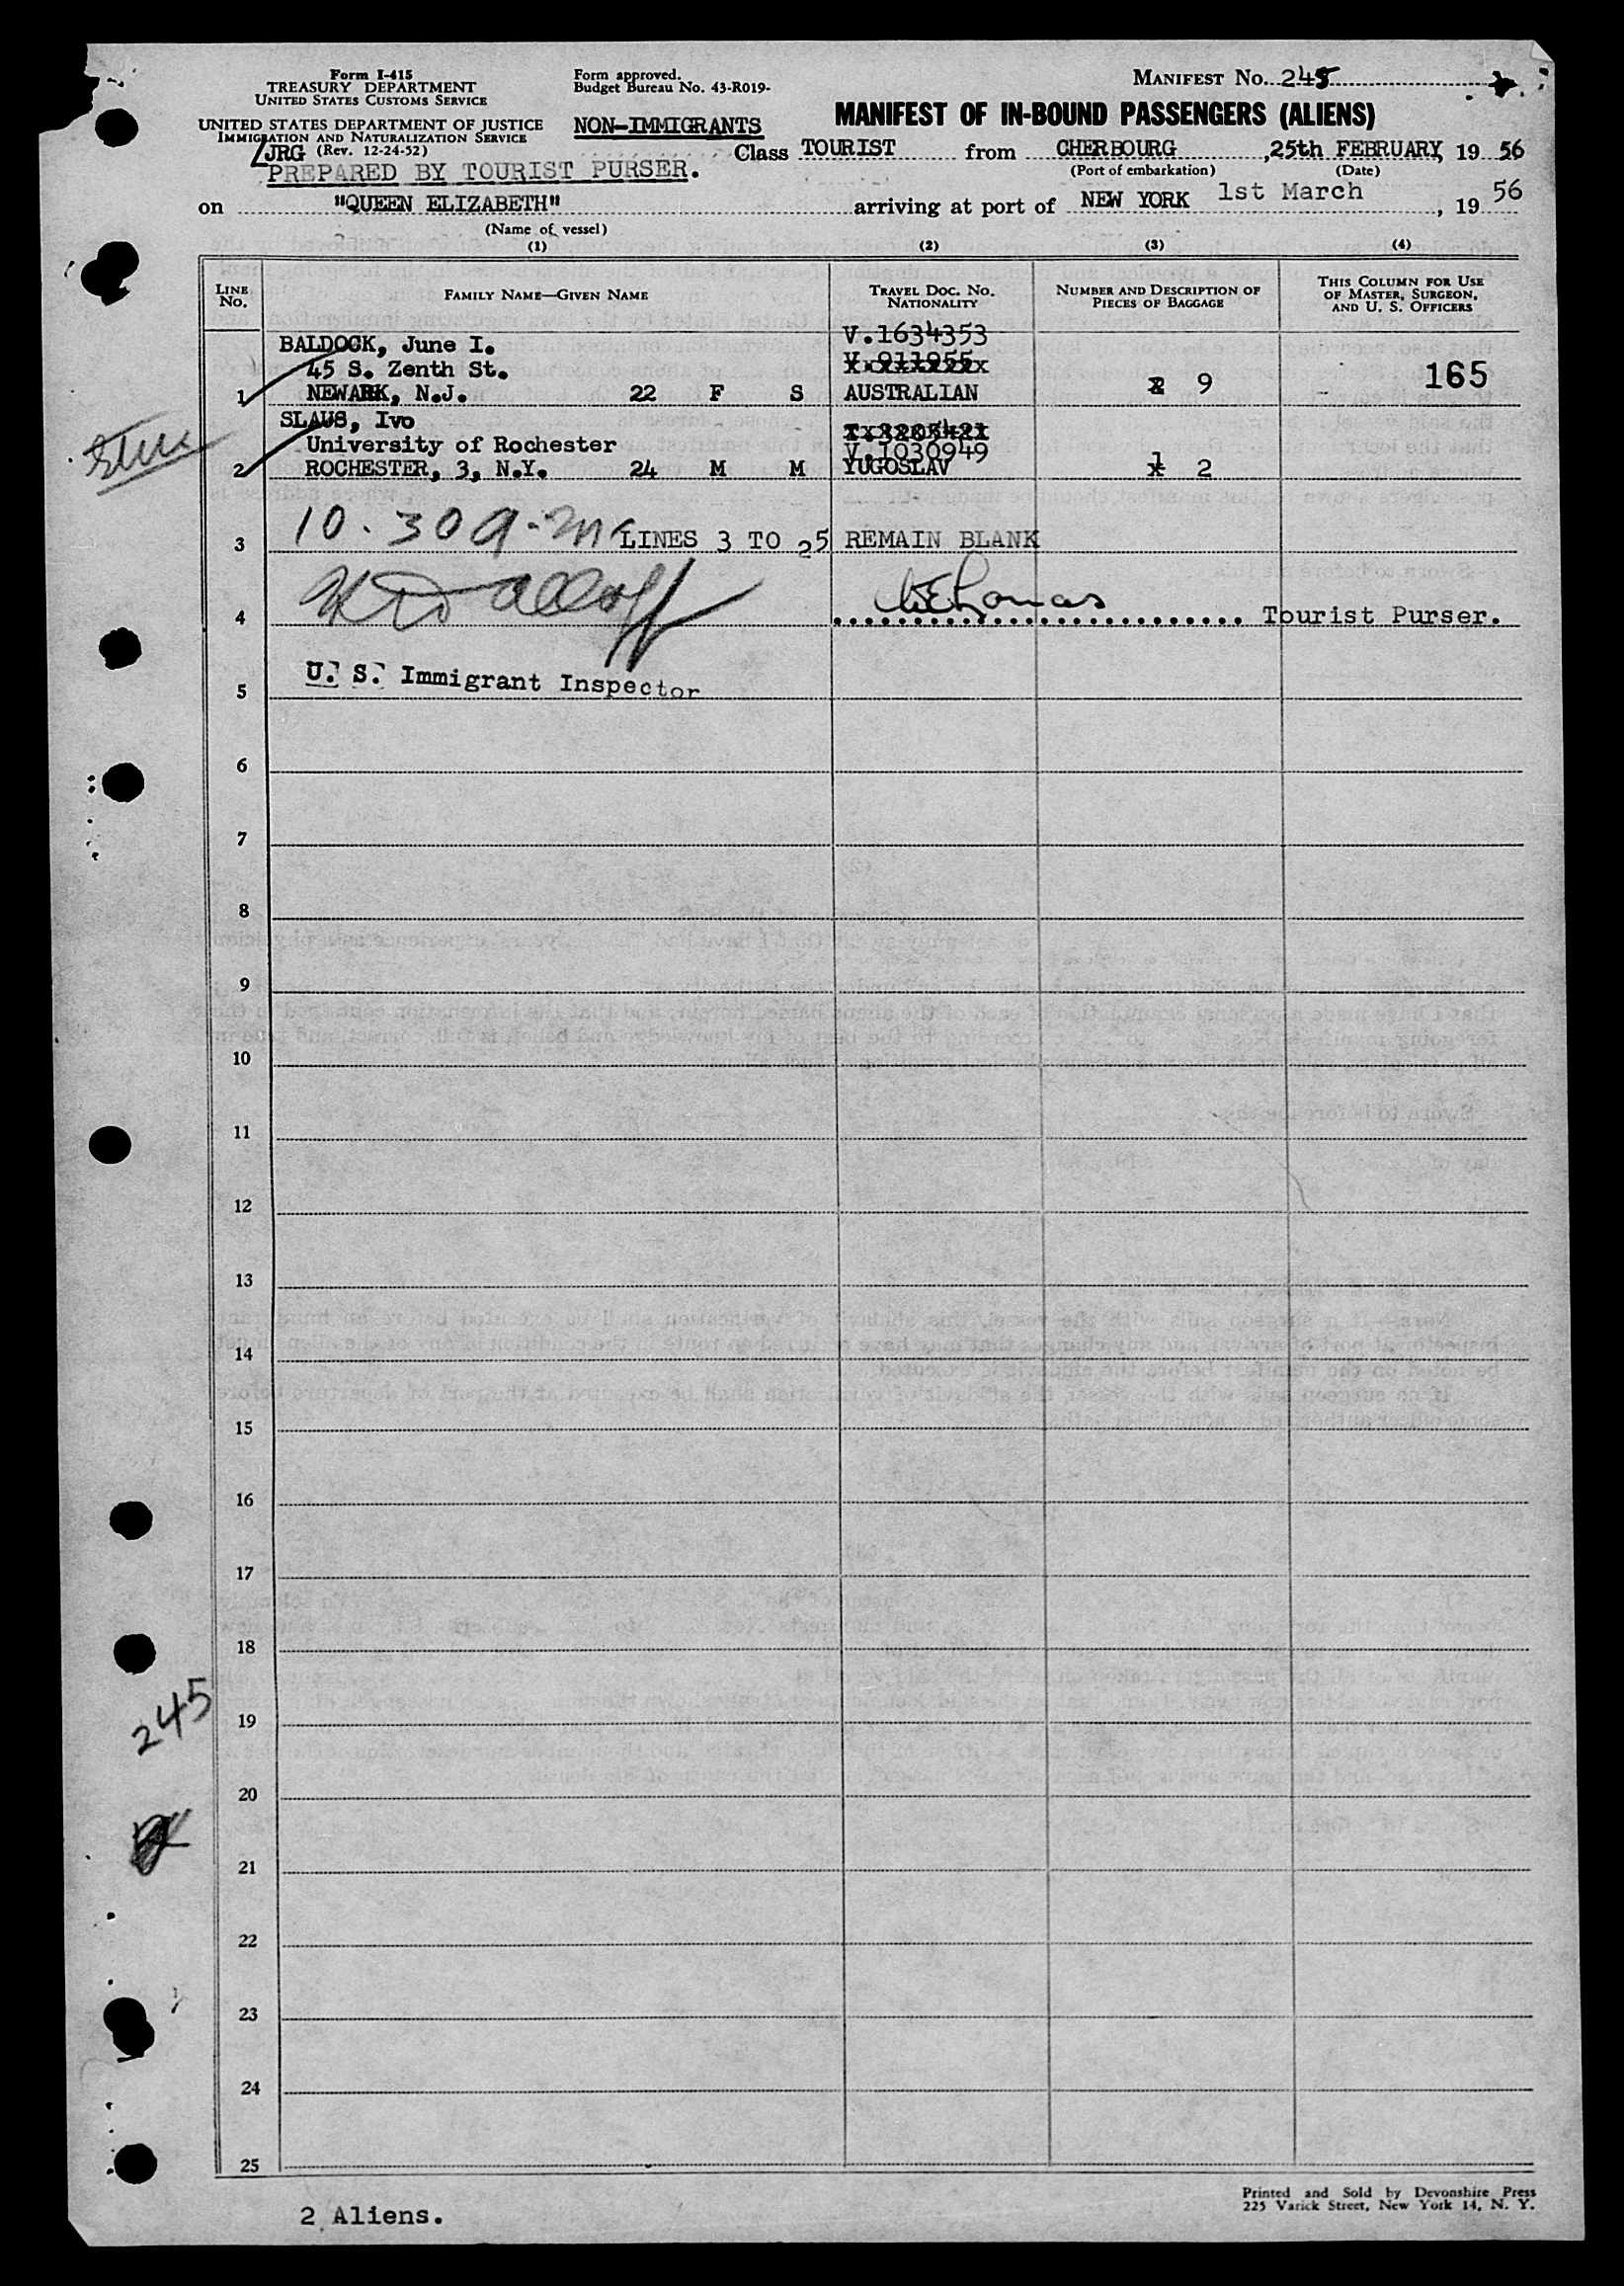 Form I-415
TREASURY DEPARTMENT
UNITED STATES CUSTOMS SERVICE
UNITED STATES DEPARTMENT OF JUSTICE
IMMIGRATION AND NATURALIZATION SERVICE
JRG (Rev. 12-24-52)
PREPARED BY TOURIST PURSER.
Form approved.
Budget Bureau No. 43-R019-
NON-IMMIGRANTS
MANIFEST NO. 245
MANIFEST OF IN-BOUND PASSENGERS (ALIENS)
Class TOURIST from CHERBOURG, 25th FEBRUARY, 19 56
(Port of embarkation) (Date)
on "QUEEN ELIZABETH" arriving at port of NEW YORK 1st March, 19 56
(Name of vessel)
(1) (2) (3) (4)
LINE NO. FAMILY NAME—GIVEN NAME TRAVEL DOC. NO. NATIONALITY NUMBER AND DESCRIPTION OF PIECES OF BAGGAGE THIS COLUMN FOR USE OF MASTER, SURGEON, AND U. S. OFFICERS
V.1634353
BALDOCK, June I.
45 S. Zenth St. V.911955
1 NEWARK, N.J. 22 F S AUSTRALIAN 2 9 165
SLAUS, Ivo
University of Rochester V.1030949
2 ROCHESTER, 3, N.Y. 24 M M YUGOSLAV 1 2
3 10.30 a.m LINES 3 TO 25 REMAIN BLANK
4 Tourist Purser.
U. S. Immigrant Inspector
5
6
7
8
9
10
11
12
13
14
15
16
17
18
245
19
20
21
22
23
24
25
2 Aliens.
Printed and Sold by Devonshire Press
225 Varick Street, New York 14, N. Y.